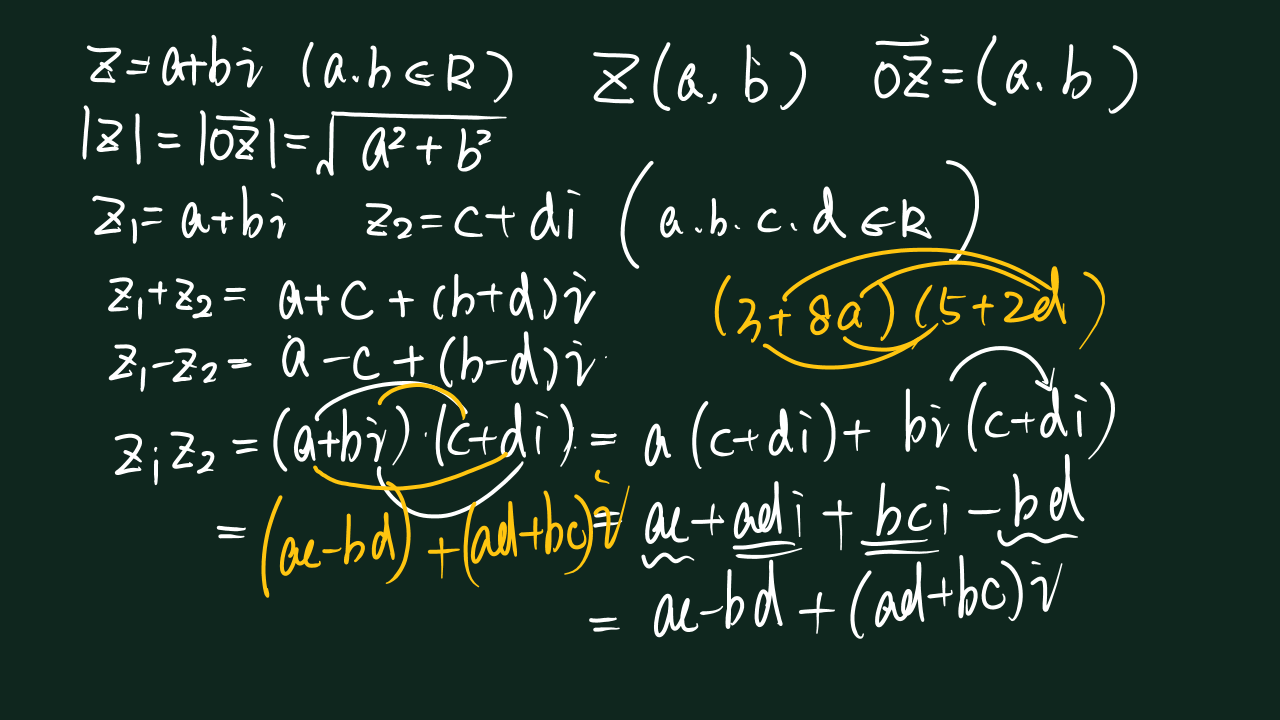 z=a+bi (a.b∈R) Z(a,b) \overrightarrow{OZ}=(a.b)
|z|=|\overrightarrow{OZ}|=√(a²+b²)
z₁=a+bi z₂=c+di (a.b.c.d∈R)
z₁+z₂= a+c+(b+d)i
(3+8a)(5+2d)
z₁-z₂= a-c+(b-d)i
z₁z₂=(a+bi)·(c+di)=a(c+di)+bi(c+di)
=(ac-bd)+(ad+bc)i
=ac+adi+bci-bd
=ac-bd+(ad+bc)i